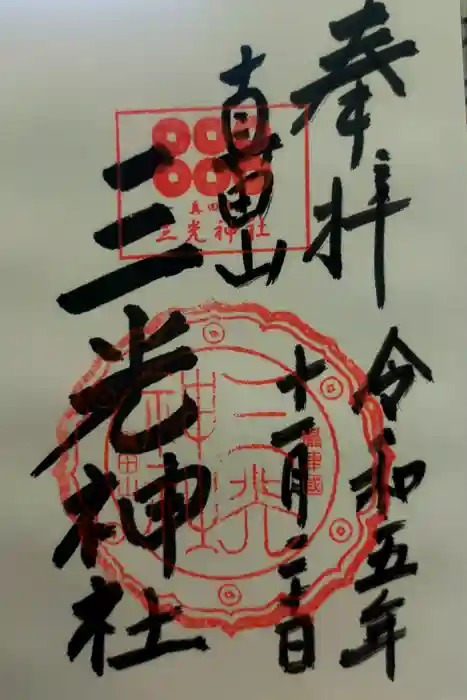 奉拝
令和五年
十一月二三日
真田山
三光神社
真田山
三光神社
三光神社